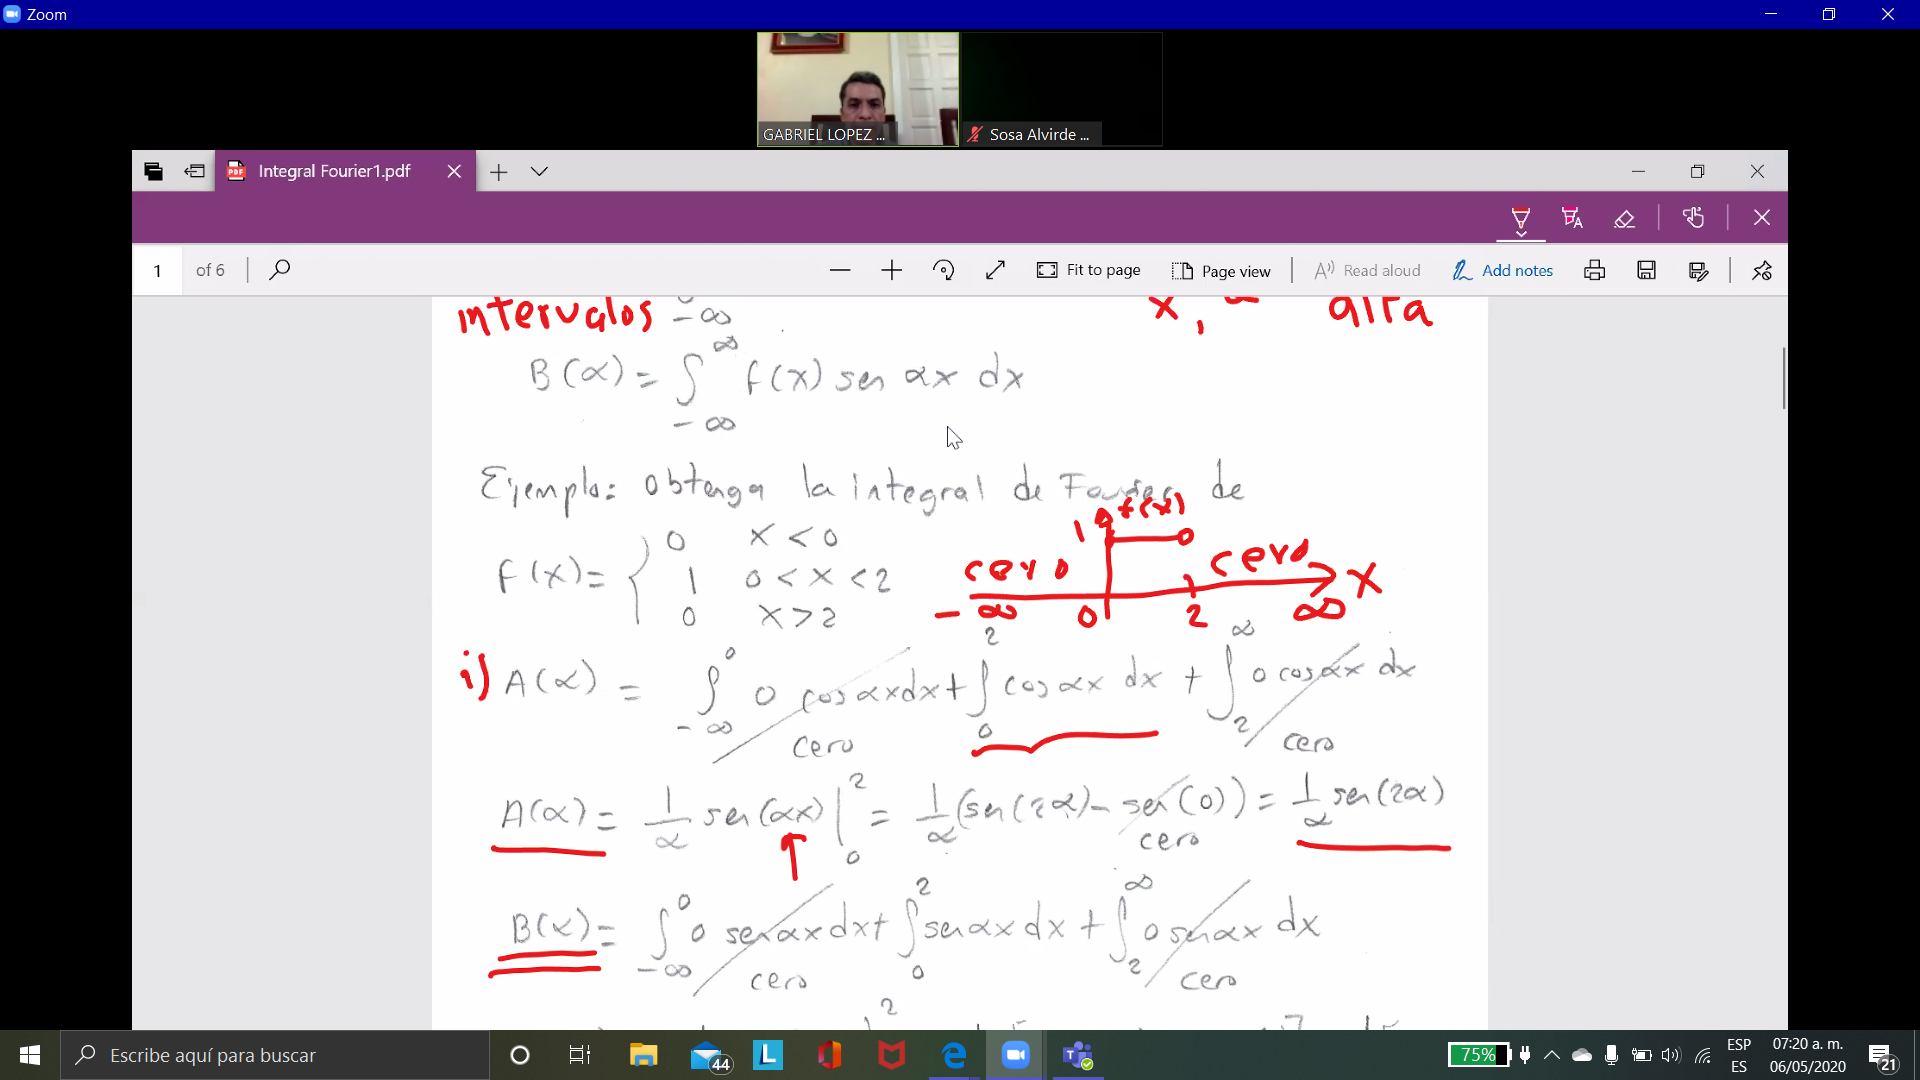 Zoom
GABRIEL LOPEZ ...
Sosa Alvirde ...
Integral Fourier1.pdf
1 of 6
Fit to page
Page view
Read aloud
Add notes
intervalos -∞
x, alta
B(α) = ∫_{-∞}^{∞} f(x) sen αx dx
Ejemplo: obtenga la integral de Fourier de
f(x)
1
cero cero x
-∞ 0 2 ∞
f(x) = { 0 x < 0
1 0 < x < 2
0 x > 2
i) A(α) = ∫_{-∞}^{0} 0 cos αx dx + ∫_{0}^{2} cos αx dx + ∫_{2}^{∞} 0 cos αx dx
cero cero
A(α) = 1/α sen(αx) |_{0}^{2} = 1/α (sen(2α) - sen(0)) = 1/α sen(2α)
cero
B(α) = ∫_{-∞}^{0} 0 sen αx dx + ∫_{0}^{2} sen αx dx + ∫_{2}^{∞} 0 sen αx dx
cero cero
2
Escribe aquí para buscar
44
75%
ESP
ES
07:20 a. m.
06/05/2020
21